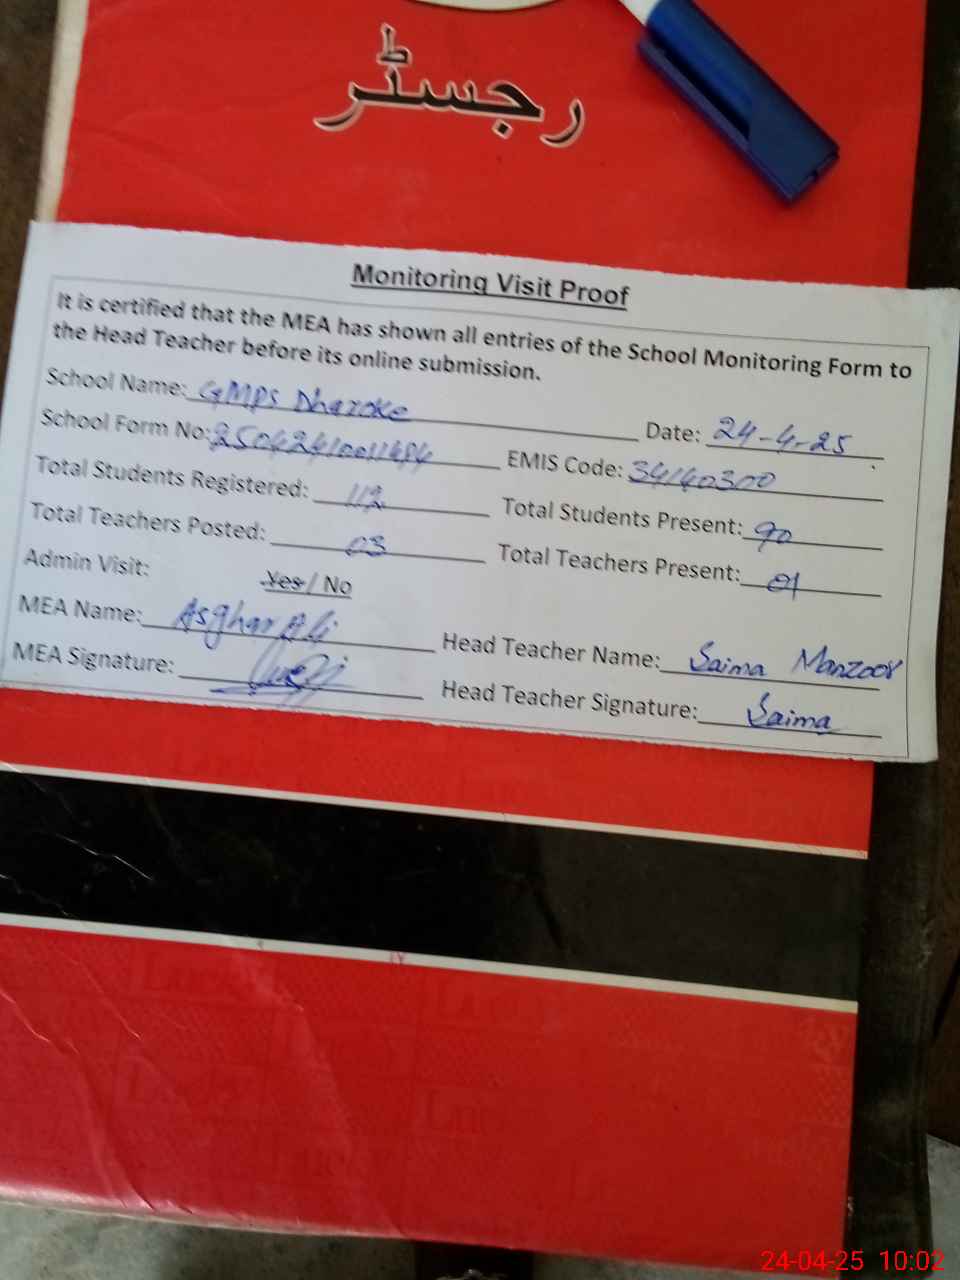 رجسٹر
Monitoring Visit Proof
It is certified that the MEA has shown all entries of the School Monitoring Form to
the Head Teacher before its online submission.
School Name: GMPS Dharoke Date: 24-4-25
School Form No: 25042410011484 EMIS Code: 34140300
Total Students Registered: 112 Total Students Present: 90
Total Teachers Posted: 03 Total Teachers Present: 01
Admin Visit: Yes / No
MEA Name: Asghar Ali Head Teacher Name: Saima Manzoor
MEA Signature: Head Teacher Signature: Saima
24-04-25 10:02